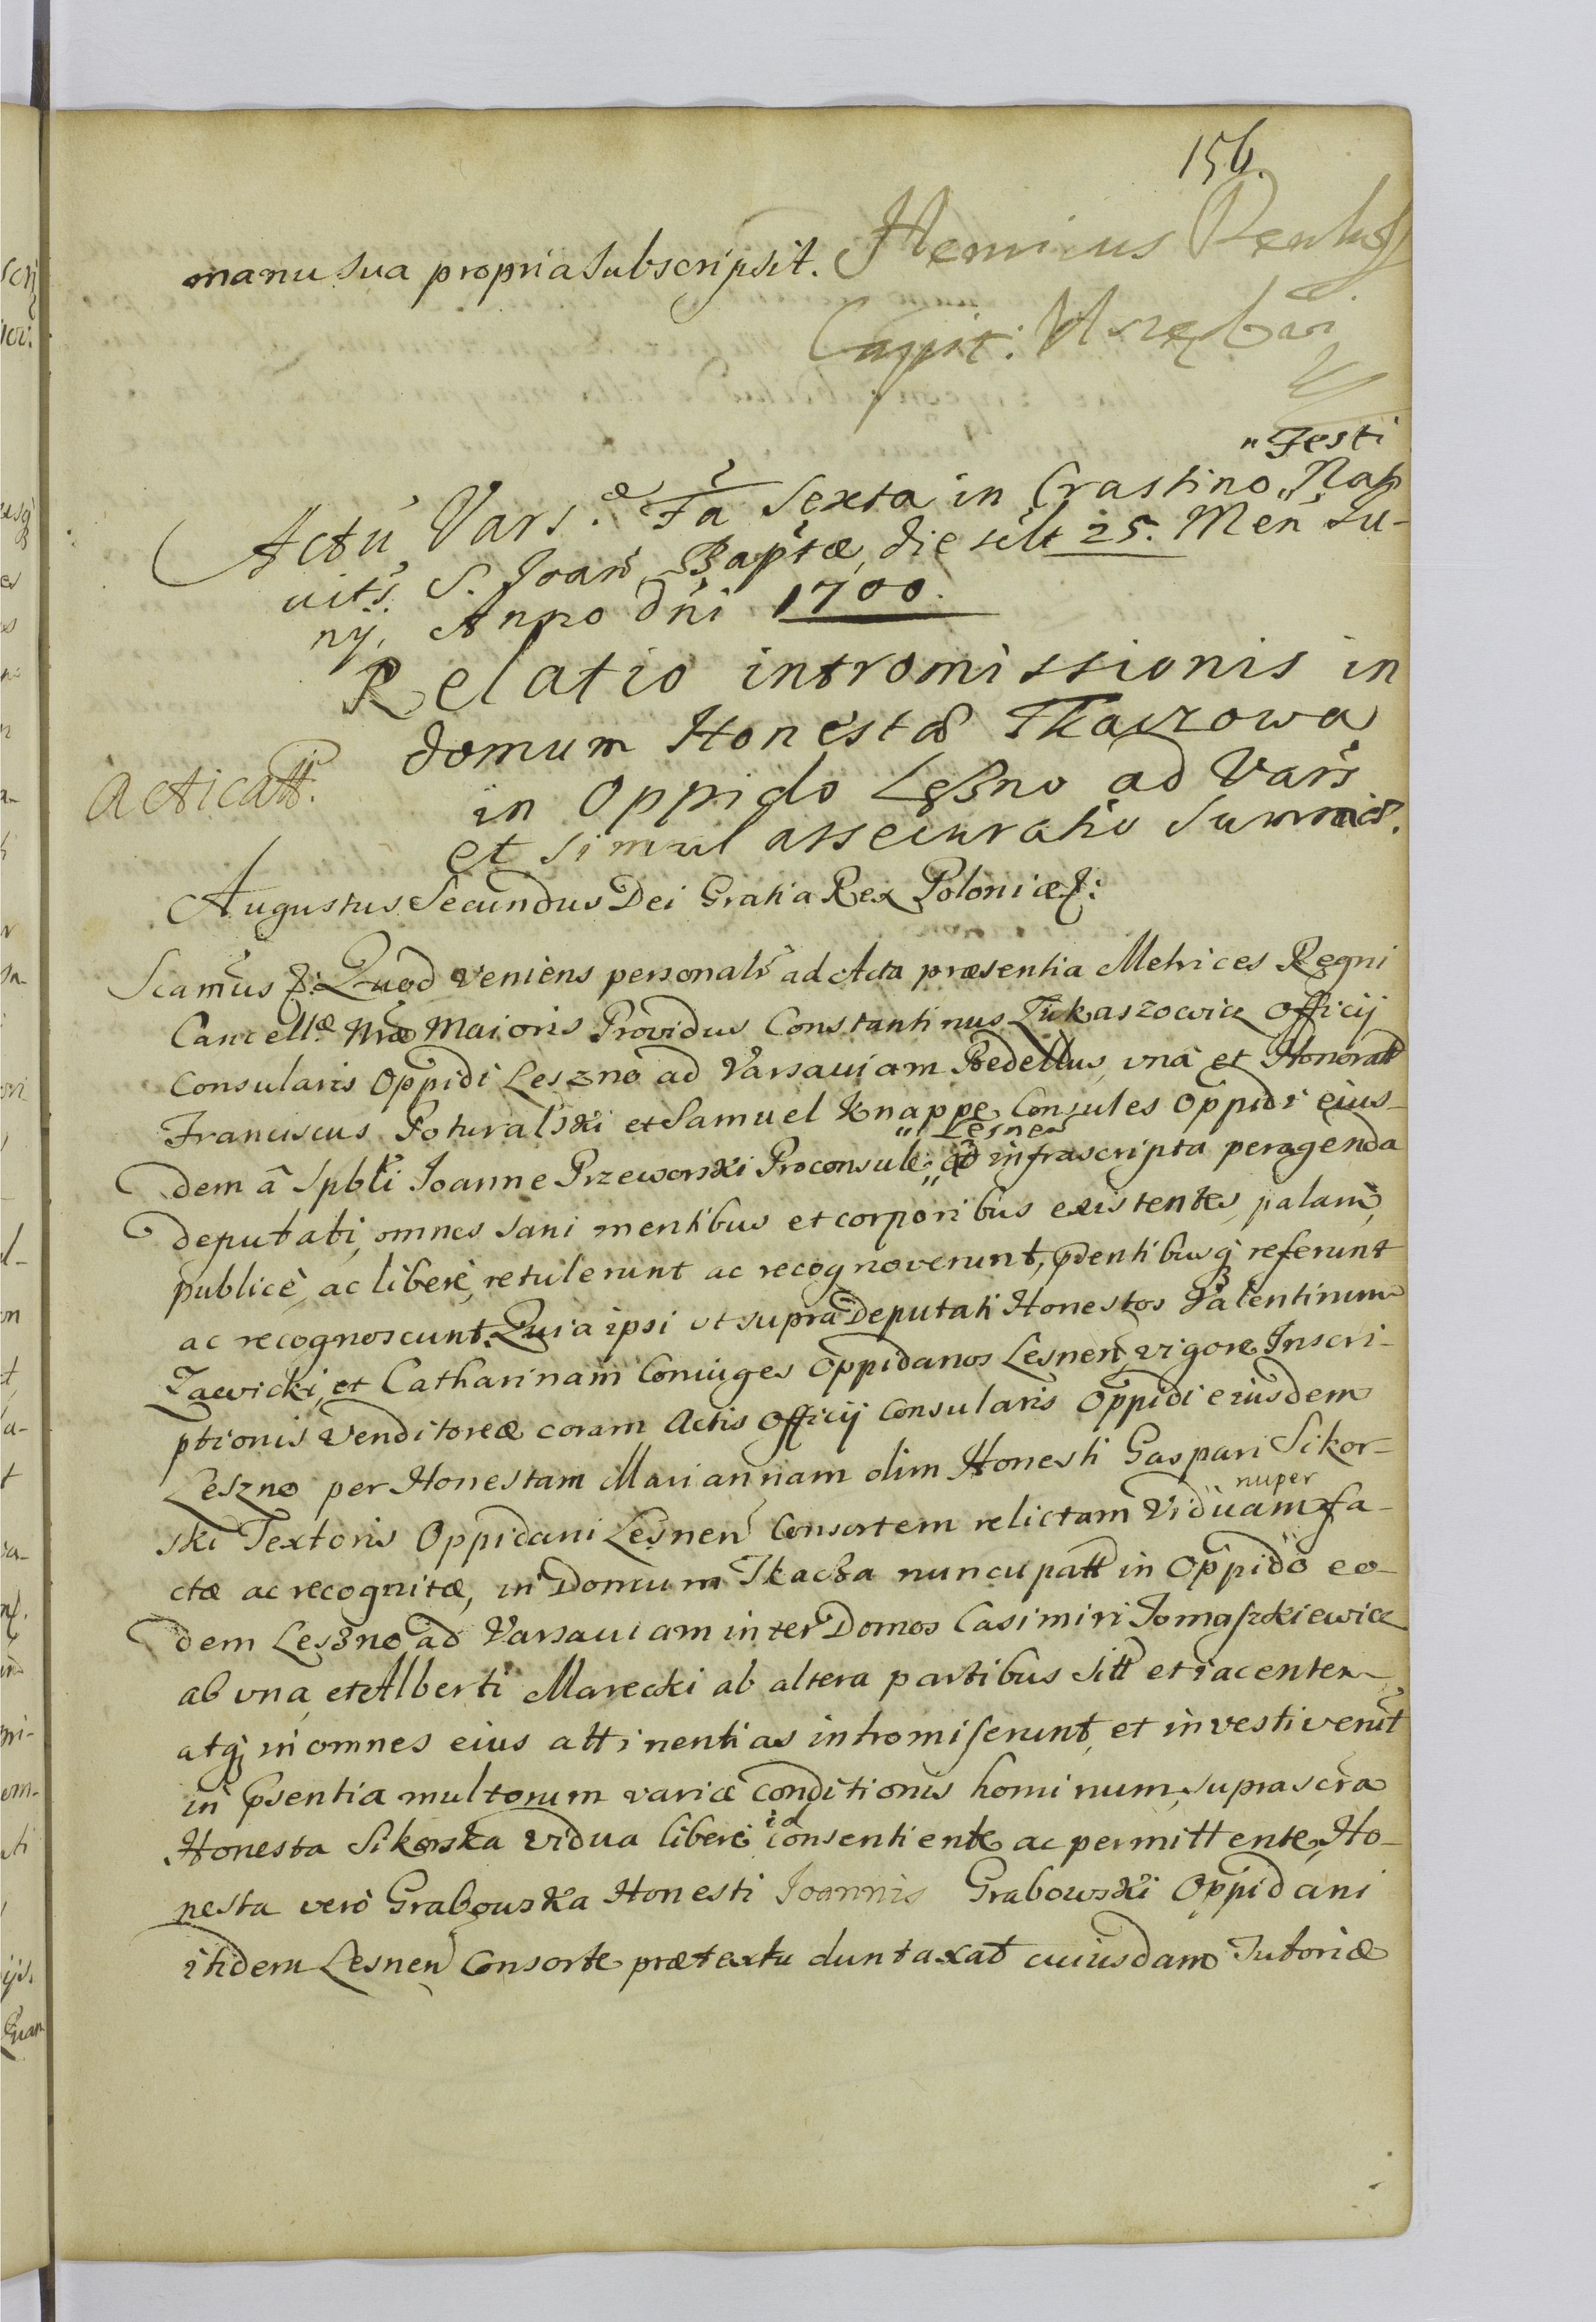 156.
manu sua propria subscripsit. Henricus
Capit:
"Festi
Actũ Vars. Fã Sexta in Crastino "Nati
uits. S. Joañ Baptæ, die sclt 25. Meñ Ju-
nÿ, Anno dñi 1700.
Relatio intromissionis in
domum Honestæ Tkaczowa
in Oppido Leszno ad Vars
et simul assecuratio Summæ.
Acticatt.
Augustus Secundus Dei Gratia Rex Poloniæ &:
Sciamus &: Quod veniens personalr ad Acta præsentia Metrices Regni
Cancellæ Nræ Maioris Providus Constantinus Łukaszowicz Officij
Consularis Oppidi Leszno ad Varsauiam Bedellus, unâ et Honoratt
Franciscus Poturalski et Samuel Knappe Consules Oppidi eius-
"Lesnen
dem â Spbli Joanne Przeworski Proconsule "ad infrascripta peragenda
deputati, omnes sani mentibus et corporibus existentes, palam,
publicè, ac liberè, retulerunt ac recognoverunt, pñtibusq referunt
ac recognoscunt. Quia ipsi ut supra Deputati Honestos Valentinum
Zawicki, et Catharinam Coniuges Oppidanos Lesnen, vigore Inscri-
ptionis Venditoreæ coram Actis Officij Consularis Oppidi eiusdem
Leszno per Honestam Mariannam olim Honesti Gaspari Sikor-
nuper
ski Textoris Oppidani Lesnen Consortem relictam Viduam fa-
ctæ ac recognitæ, in Domum Tkacza nuncupatt in Oppido eo-
dem Leszno ad Varsauiam inter Domos Casimiri Tomaszkiewicz
ab una, et Alberti Marecki ab altera partibus sitt et iacenten
atq in omnes eius attinentias intromiserunt, et investiverũt
in pñsentia multorum variæ conditionis hominum, suprascrã
id
Honesta Sikorska vidua liberè consentiente ac permittente, Ho-
nesta verò Grabowska Honesti Joannis Grabowski Oppidani
itidem Lesnen Consorte prætextu duntaxat cuiusdam Tutoriæ